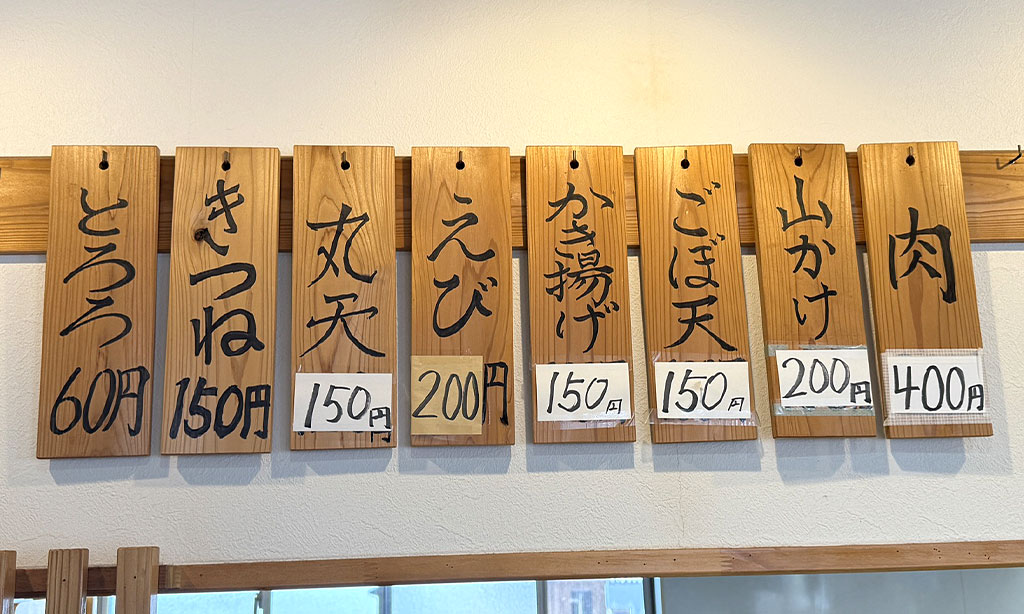 とろろ
60円
きつね
150円
丸天
150円
えび
200円
かき揚げ
150円
ごぼ天
150円
山かけ
200円
肉
400円